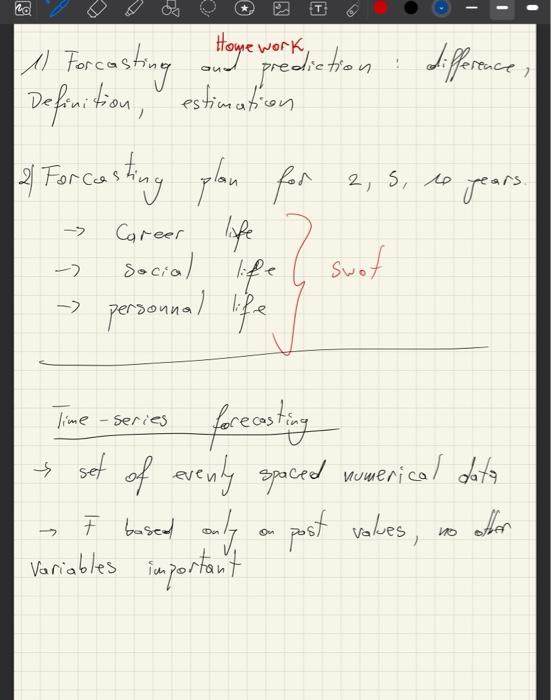 Homework
1) Forcasting and prediction : difference,
Definition, estimation
2) Forcasting plan for 2, 5, 10 years.
→ Career life
→ social life
→ personnal life
swot
Time-series forecasting
→ set of evenly spaced numerical data
→ F based only on past values, no other
variables important